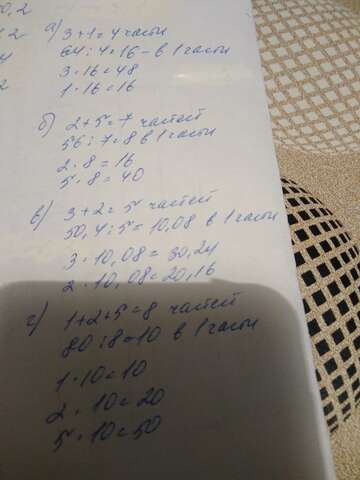 0,2
2
4
2
а) 3+1=4 части
64:4=16- в 1 части
3·16=48
1·16=16
б) 2+5=7 частей
56:7=8 в 1 части
2·8=16
5·8=40
в) 3+2=5 частей
50,4:5=10,08 в 1 части
3·10,08=30,24
2·10,08=20,16
г) 1+2+5=8 частей
80:8=10 в 1 части
1·10=10
2·10=20
5·10=50